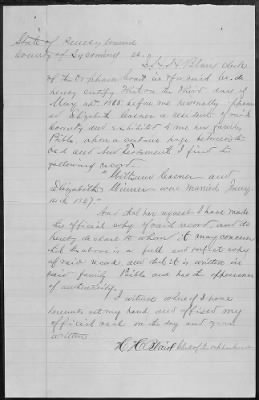 State of Pennsylvania
County of Lycoming ss.
I, H. H. Blair Clerk
of the Orphans Court in aforesaid Co. do
hereby certify that on the Third day of
May AD. 1865 before me personally
Elizabeth a resident of said
County and exhibited to me her family
Bible, upon a certain page between the
Old and New Testament I find the
following record
"William and
Elizabeth were married
1827."
And that her request I have made
this official copy of said record, and do
hereby declare to whom it may concern
that the above is a full and perfect copy
of said record and that it is written in
said family Bible and has the appearance
of authenticity.
In witness whereof I have
hereunto set my hand and affixed my
official seal on the day and year
written
H. H. Blair Clerk of the Orphans Court